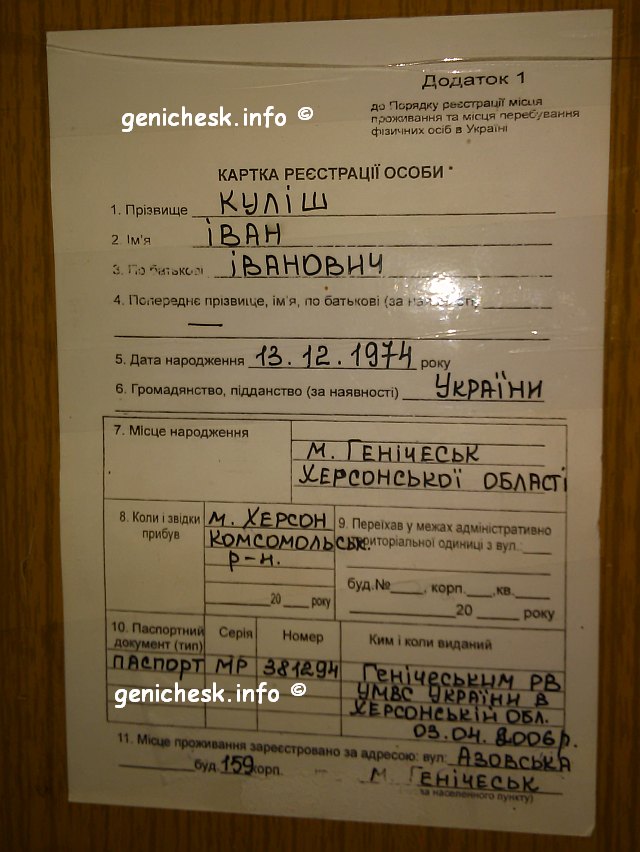 Додаток 1
genichesk.info ©
до Порядку реєстрації місця
проживання та місця перебування
фізичних осіб в Україні
КАРТКА РЕЄСТРАЦІЇ ОСОБИ
1. Прізвище КУЛІШ
2. Ім'я ІВАН
3. По батькові ІВАНОВИЧ
4. Попереднє прізвище, ім'я, по батькові (за наявності)
—
5. Дата народження 13.12.1974 року
6. Громадянство, підданство (за наявності) УКРАЇНИ
7. Місце народження
М. ГЕНІЧЕСЬК
ХЕРСОНСЬКОЇ ОБЛАСТІ
8. Коли і звідки прибув
М. ХЕРСОН
КОМСОМОЛЬСЬК.
Р-Н.
20 року
9. Переїхав у межах адміністративно
територіальної одиниці з вул.:
буд.№ , корп. ,кв.
20 року
10. Паспортний документ (тип) Серія Номер Ким і коли виданий
ПАСПОРТ МР 381294 ГЕНІЧЕСЬКИМ РВ
УМВС УКРАЇНИ В
ХЕРСОНСЬКІЙ ОБЛ.
03.04.2006р.
genichesk.info ©
11. Місце проживання зареєстровано за адресою: вул: АЗОВСЬКА
буд. 159 корп. М. ГЕНІЧЕСЬК
населеного пункту)